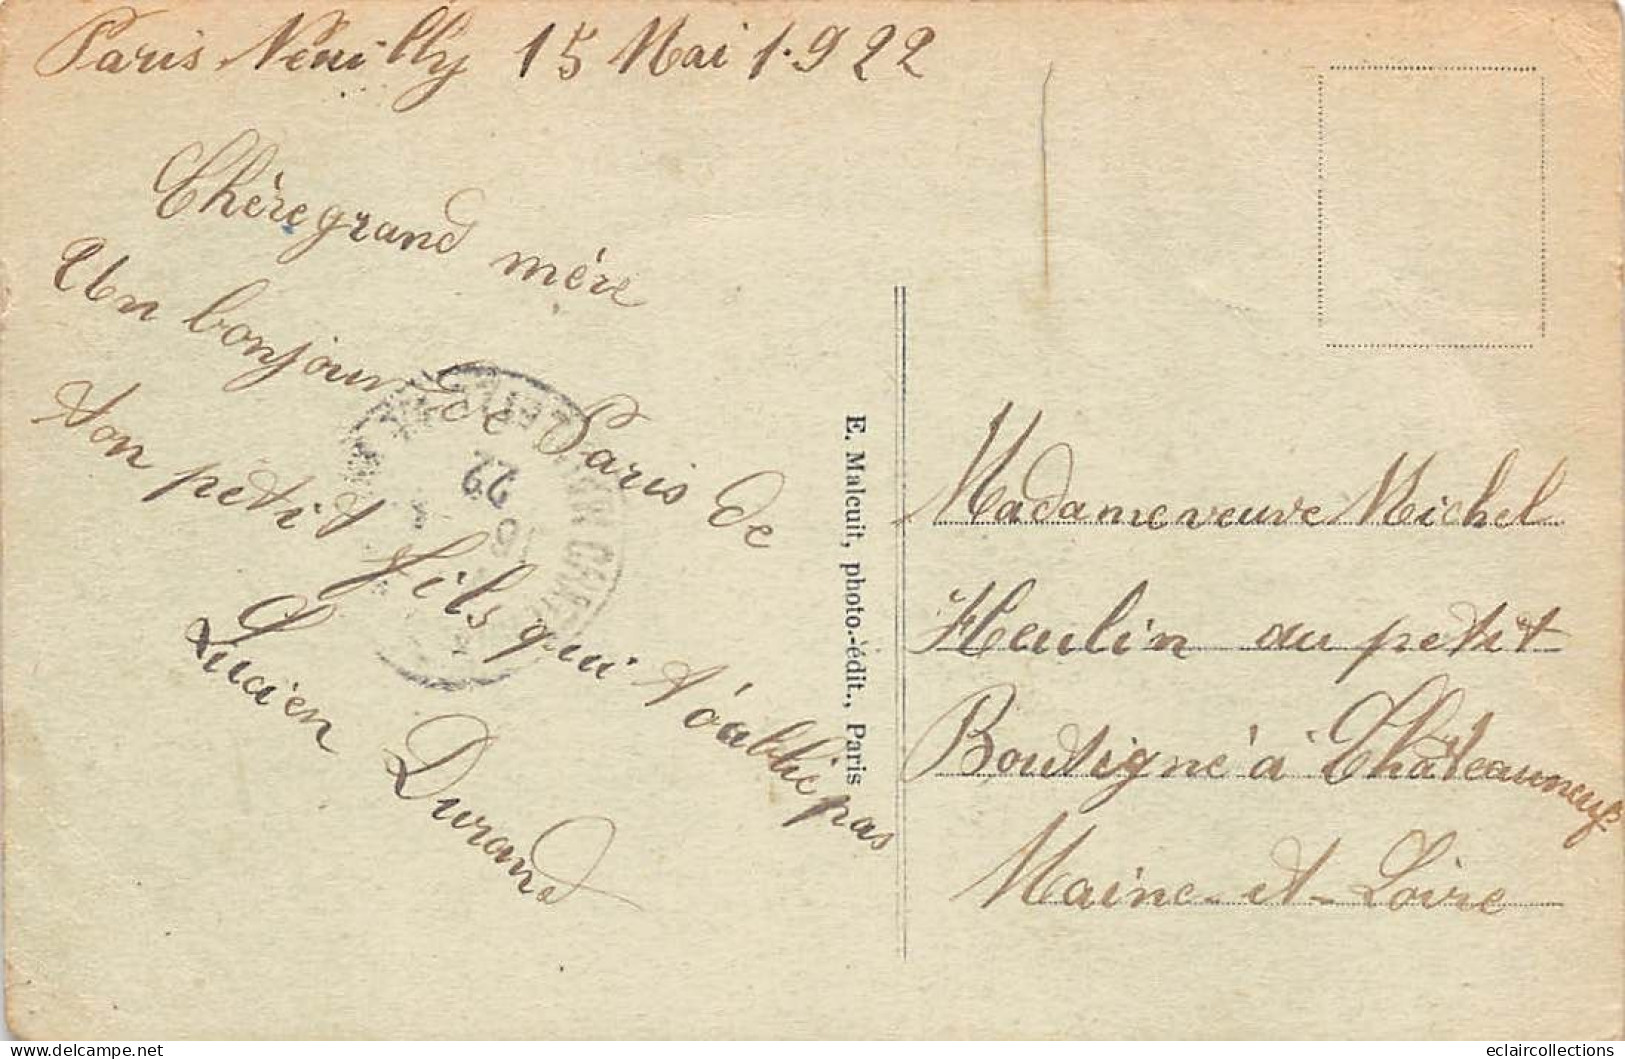 Paris Neuilly 15 Mai 1.922
Chère grand mère
Un bonjour de Paris de
ton petit fils qui t'oublie pas
Lucien Durand
22
E. Malcuit, photo.-édit., Paris
Madame veuve Michel
Heulin au petit
Boutigné à Châteauneuf
Maine-et-Loire
delcampe.net
eclaircollections